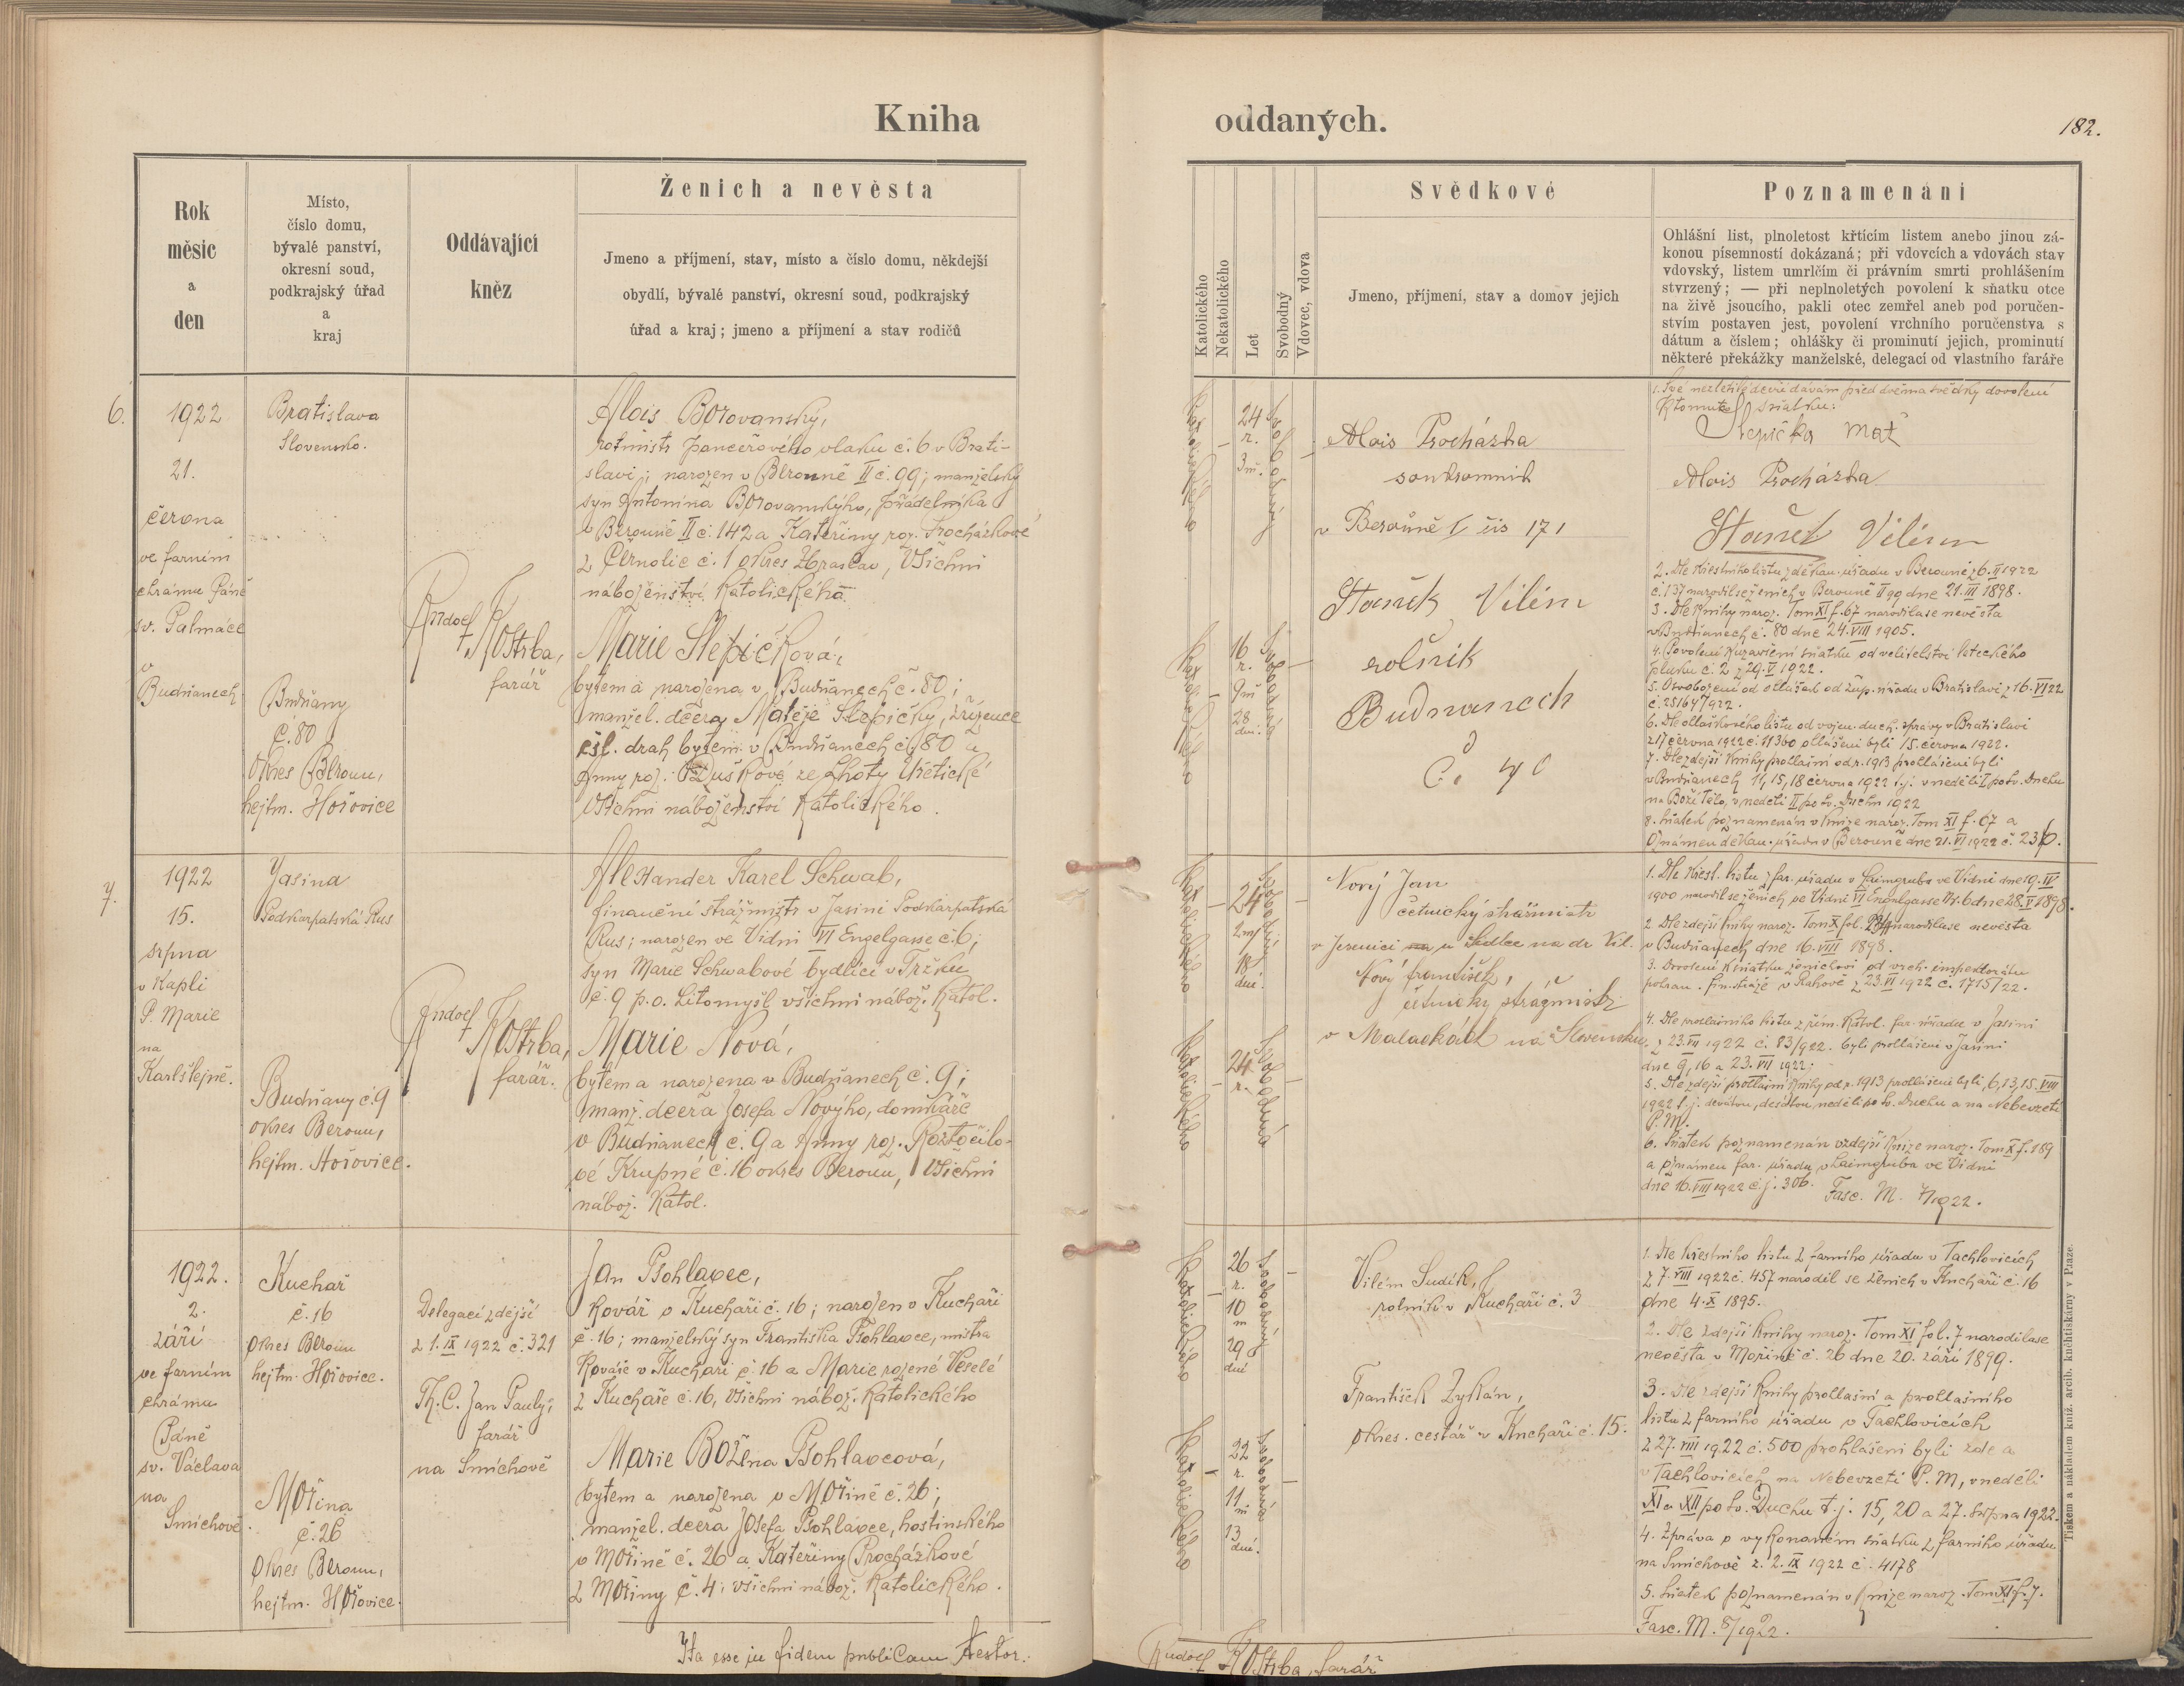 Kniha oddaných.
182.
Rok
měsíc
a
den
Místo,
číslo domu,
bývalé panství,
okresní soud,
podkrajský úřad
a
kraj
Oddávající
kněz
Ženich a nevěsta
Jmeno a příjmení, stav, místo a číslo domu, někdejší
obydlí, bývalé panství, okresní soud, podkrajský
úřad a kraj; jmeno a příjmení a stav rodičů
Katolického
Nekatolického
Let
Svobodný
Vdovec, vdova
Svědkové
Jmeno, příjmení, stav a domov jejich
Poznamenání
Ohlášní list, plnoletost křtícím listem anebo jinou zá-
konou písemností dokázaná; při vdovcích a vdovách stav
vdovský, listem umrlčím či právním smrti prohlášením
stvrzený; — při neplnoletých povolení k sňatku otce
na živě jsoucího, pakli otec zemřel aneb pod poručen-
stvím postaven jest, povolení vrchního poručenstva s
dátum a číslem; ohlášky či prominutí jejich, prominutí
některé překážky manželské, delegací od vlastního faráře
6.
1922
21.
června
ve farním
chrámu Páně
sv. Palmácé
v
Budňanech
Bratislava
Slovensko.
Budňany
č. 80
Okres Beroun,
hejtm. Hořovice
Rudolf Kostrba,
farář
Alois Borovanský,
rotmistr pancéřového vlaku č. 6 v Brati-
slavi; narozen v Berouně II č. 99; manželský
syn Antonína Borovanskýho, přádelníka
v Berouně II č. 142 a Kateřiny roz. Procházkové
z Černolic č. 1 okres Zbraslav, Všichni
náboženství Katolického.
Marie Slepičková,
bytem a narozena v Budňanech č. 80;
manžel. dcera Matěje Slepičky, zřízence
čsl. drah bytem v Budňanech č. 80 a
Anny roz. Duškové ze Lhoty
Všichni náboženství Katolického.
Katolického
24
r.
3 m.
Svobodný
Katolického
16
r.
9 m
28
dní.
Svobodná
Alois Procházka
soukromník
v Berouně I čís 171
Stančk Vilém
rolník
Budnanech
č. 40
1. Své nezletilé dceři dávám před dvěma svědky dovolení
k tomuto sňatku:
Slepička Mat
Alois Procházka
Vilém
2. Dle křestního listu z děkan. úřadu v Berouně z 6. II 1922
č. 137 narodil se ženich v Berouně II 99 dne 21. III 1898.
3. Dle Knihy naroz. Tom XI f. 67 narodila se nevěsta
v Budňanech č. 80 dne 24. VIII 1905.
4. Povolení k uzavření sňatku od velitelství leteckého
pluku č. 2 z 29. V 1922.
5. Osvobození od ohlášek od žup. úřadu v Bratislavi z 16. VI 22
č. 25164/922.
6. Dle ohláškového listu od vojen. duch. správy v Bratislavi
z 17 června 1922 č. 11360 ohlášeni byli 15. června 1922.
7. Dle zdejší knihy prohlašní od r. 1913 prohlášeni byli
v Budňanech 11, 15, 18 června 1922 t.j. v neděli I po sv. Duchu
na Boží Tělo, v neděli II po sv. Duchu 1922
8. Sňatek poznamenán v knize naroz. Tom XI f. 67 a
oznámen děkan. úřadu v Berouně dne 21. VI 1922 č. 236.
7.
1922
15.
srpna
v Kapli
P. Marie
na
Karlštejně.
Jasina
Podkarpatská Rus
Budňany č. 9
okres Beroun,
hejtm. Hořovice.
Rudolf Kostrba,
farář.
Alexander Karel Schwab,
finanční strážmistr v Jasini Podkarpatská
Rus; narozen ve Vídni VI Engelgasse č. 6;
syn Marie Schwabové bydlící v Tržku
č. 9 p. o. Litomyšl všichni nábož. Katol.
Marie Nová,
bytem a narozena v Budňanech č. 9;
manž. dcera Josefa Novýho, domkáře
v Budňanech č. 9 a Anny roz. Roztočilo-
vé Krupné č. 16 okres Beroun, Všichni
nábož. Katol.
Katolického
24
2 m
18
dní.
Svobodný
Katolického
24
r.
Svobodná
Nový Jan
četnický strážmistr
v Jesenici u Sedlce na dr. Vil.
Nový František,
četnický strážmistr
v Malackách na Slovensku.
1. Dle křest. listu z far. úřadu v Laimgrube ve Vídni dne 19. IV
1900 narodil se ženich ve Vídni VI Engelgasse Nr. 6 dne 28. V 1898.
2. Dle zdejší knihy naroz. Tom X fol. narodila se nevěsta
v Budňanech dne 16. VIII 1898.
3. Dovolení k sňatku ženichovi od vrch. inspektorátu
pohran. fin. stráže v Rahově z 23. VI 1922 č. 1715/22.
4. Dle prohlašního listu z řím. Katol. far. úřadu v Jasini
z 23. VII 1922 č. 83/922. byli prohlášeni v Jasini
dne 9, 16 a 23. VII 1922;
5. Dle zdejší prohlašní knihy od r. 1913 prohlášeni byli, 6, 13, 15. VIII
1922 t.j. devátou, desátou neděli po sv. Duchu a na Nebevzetí
P. M.
6. Sňatek poznamenán v zdejší knize naroz. Tom X f. 189
a oznámen far. úřadu v Laimgruba ve Vídni
dne 16. VIII 1922 č. j. 306. Fasc. M. 7/1922.
1922.
2.
září
ve farním
chrámu
Páně
sv. Václava
na
Smíchově.
Kuchař
č. 16
Okres Beroun
hejtm. Hořovice.
Mořina
č. 26
Okres Beroun,
hejtm. Hořovice.
Delegací zdejší
z 1. IX 1922 č. 321
Th. C. Jan Pauly,
farář
na Smíchově
Jan Psohlavec,
Kovář v Kuchaři č. 16; narozen v Kuchaři
č. 16; manželský syn Františka Psohlavce, mistra
Kováře v Kuchaři č. 16 a Marie rozené Veselé
z Kuchaře č. 16, Všichni nábož. Katolického
Marie Božena Psohlavcová,
bytem a narozena v Mořině č. 26;
manžel. dcera Josefa Psohlavce, hostinského
v Mořině č. 26 a Kateřiny Procházkové
z Mořiny č. 4; všichni nábož. Katolického.
Katolického
26
r.
10
m
29
dní
Svobodný
Katolického
22
r.
11
m
13
dní.
Svobodná
Vilém Sudík,
rolník v Kuchaři č. 3
František Zykán,
Okres. cestář v Kuchaři č. 15.
1. Dle křestního listu z farního úřadu v Tachlovicích
z 7. VIII 1922 č. 457 narodil se ženich v Kuchaři č. 16
dne 4. X 1895.
2. Dle zdejší knihy naroz. Tom XI fol. 7 narodila se
nevěsta v Mořině č. 26 dne 20. září 1899.
3. Dle zdejší knihy prohlašní a prohlašního
listu z farního úřadu v Tachlovicích
z 27. VIII 1922 č. 500 prohlášeni byli zde a
v Tachlovicích na Nebevzetí P. M, v neděli
XI a XII po sv. Duchu t.j. 15, 20 a 27. srpna 1922.
4. Zpráva o vykonaném sňatku z farního úřadu
na Smíchově z. 2. IX 1922 č. 4178
5. Sňatek poznamenán v knize naroz. Tom XI f. 7.
Fasc. M. 8/1922.
Tiskem a nákladem kníž. arcib. knihtiskárny v Praze.
Ita esse in fidem publicam testor.
Rudolf Kostrba, farář